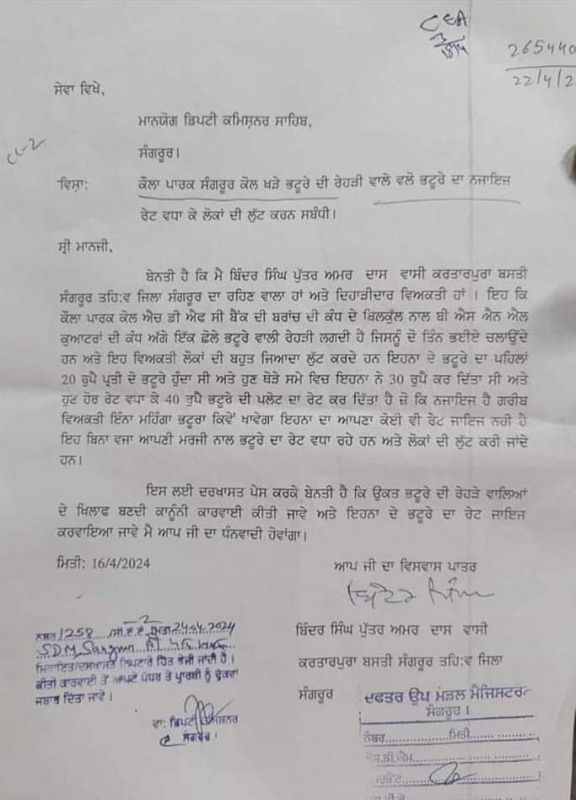 CEA
265440
22/4/2
ਸੇਵਾ ਵਿਖੇ,
ਮਾਨਯੋਗ ਡਿਪਟੀ ਕਮਿਸ਼ਨਰ ਸਾਹਿਬ,
ਸੰਗਰੂਰ।
ਵਿਸ਼ਾ: ਕੌਲਾ ਪਾਰਕ ਸੰਗਰੂਰ ਕੋਲ ਖੜੇ ਭਟੂਰੇ ਦੀ ਰੇਹੜੀ ਵਾਲੇ ਵਲੋ ਭਟੂਰੇ ਦਾ ਨਜਾਇਜ
ਰੇਟ ਵਧਾ ਕੇ ਲੋਕਾਂ ਦੀ ਲੁੱਟ ਕਰਨ ਸਬੰਧੀ।
ਸ੍ਰੀ ਮਾਨਜੀ,
ਬੇਨਤੀ ਹੈ ਕਿ ਮੈ ਬਿੰਦਰ ਸਿੰਘ ਪੁੱਤਰ ਅਮਰ ਦਾਸ ਵਾਸੀ ਕਰਤਾਰਪੁਰਾ ਬਸਤੀ
ਸੰਗਰੂਰ ਤਹਿ:ਵ ਜਿਲਾ ਸੰਗਰੂਰ ਦਾ ਰਹਿਣ ਵਾਲਾ ਹਾਂ ਅਤੇ ਦਿਹਾੜੀਦਾਰ ਵਿਅਕਤੀ ਹਾਂ । ਇਹ ਕਿ
ਕੌਲਾ ਪਾਰਕ ਕੋਲ ਐਚ ਡੀ ਐਫ ਸੀ ਬੈਂਕ ਦੀ ਬਰਾਂਚ ਦੀ ਕੰਧ ਦੇ ਬਿਲਕੁੱਲ ਨਾਲ ਬੀ ਐਸ ਐਨ ਐਲ
ਕੁਆਟਰਾਂ ਦੀ ਕੰਧ ਅੱਗੇ ਇੱਕ ਛੋਲੇ ਭਟੂਰੇ ਵਾਲੀ ਰੇਹੜੀ ਲਗਦੀ ਹੈ ਜਿਸਨੂੰ ਦੋ ਤਿੰਨ ਭਈਏ ਚਲਾਉਂਦੇ
ਹਨ ਅਤੇ ਇਹ ਵਿਅਕਤੀ ਲੋਕਾਂ ਦੀ ਬਹੁਤ ਜਿਆਦਾ ਲੁੱਟ ਕਰਦੇ ਹਨ ਇਹਨਾ ਦੇ ਭਟੂਰੇ ਦਾ ਪਹਿਲਾਂ
20 ਰੁਪੈ ਪ੍ਰਤੀ ਦੋ ਭਟੂਰੇ ਹੁੰਦਾ ਸੀ ਅਤੇ ਹੁਣ ਥੋੜੇ ਸਮੇ ਵਿਚ ਇਹਨਾ ਨੇ 30 ਰੁਪੈ ਕਰ ਦਿੱਤਾ ਸੀ ਅਤੇ
ਹੁਣ ਹੋਰ ਰੇਟ ਵਧਾ ਕੇ 40 ਰੁਪੈ ਭਟੂਰੇ ਦੀ ਪਲੇਟ ਦਾ ਰੇਟ ਕਰ ਦਿੱਤਾ ਹੈ ਜ਼ੋ ਕਿ ਨਜਾਇਜ ਹੈ ਗਰੀਬ
ਵਿਅਕਤੀ ਇੰਨਾ ਮਹਿੰਗਾ ਭਟੂਰਾ ਕਿਵੇਂ ਖਾਵੇਗਾ ਇਹਨਾ ਦਾ ਆਪਣਾ ਕੋਈ ਵੀ ਰੇਟ ਜਾਇਜ ਨਰੀ ਹੈ
ਇਹ ਬਿਨਾ ਵਜਾ ਆਪਣੀ ਮਰਜੀ ਨਾਲ ਭਟੂਰੇ ਦਾ ਰੇਟ ਵਧਾ ਰਹੇ ਹਨ ਅਤੇ ਲੋਕਾਂ ਦੀ ਲੁੱਟ ਕਰੀ ਜਾਂਦੇ
ਹਨ।
ਇਸ ਲਈ ਦਰਖਾਸਤ ਪੇਸ ਕਰਕੇ ਬੇਨਤੀ ਹੈ ਕਿ ਉਕਤ ਭਟੂਰੇ ਦੀ ਰੇਹੜੇ ਵਾਲਿਆਂ
ਦੇ ਖਿਲਾਫ ਬਣਦੀ ਕਾਨੂੰਨੀ ਕਾਰਵਾਈ ਕੀਤੀ ਜਾਵੇ ਅਤੇ ਇਹਨਾ ਦੇ ਭਟੂਰੇ ਦਾ ਰੇਟ ਜਾਇਜ
ਕਰਵਾਇਆ ਜਾਵੇ ਮੈ ਆਪ ਜੀ ਦਾ ਧੰਨਵਾਦੀ ਹੋਵਾਂਗਾ।
ਮਿਤੀ: 16/4/2024 ਆਪ ਜੀ ਦਾ ਵਿਸਵਾਸ ਪਾਤਰ
ਬਿੰਦਰ ਸਿੰਘ
ਬਿੰਦਰ ਸਿੰਘ ਪੁੱਤਰ ਅਮਰ ਦਾਸ ਵਾਸੀ
ਕਰਤਾਰਪੁਰਾ ਬਸਤੀ ਸੰਗਰੂਰ ਤਹਿ:ਵ ਜਿਲਾ
ਸੰਗਰੂਰ
ਨੰਬਰ 1258 ਮਿਤੀ 24.04.2024
SDM Sangrur
ਨਿਪਟਾਰੇ ਹਿਤ ਭੇਜੀ ਜਾਂਦੀ ਹੈ।
ਕੀਤੀ ਕਾਰਵਾਈ ਤੋਂ ਆਪਣੇ ਪੱਧਰ ਤੇ ਪ੍ਰਾਰਥੀ ਨੂੰ ਢੁਕਵਾਂ
ਜਬਾਬ ਦਿੱਤਾ ਜਾਵੇ।
ਵਾ: ਡਿਪਟੀ ਕਮਿਸ਼ਨਰ
ਸੰਗਰੂਰ।
ਦਫਤਰ ਉਪ ਮੰਡਲ ਮੈਜਿਸਟਰੇਟ
ਸੰਗਰੂਰ।
ਨੰਬਰ.............ਮਿਤੀ............
ਐਸ.ਡੀ.ਐਮ...................